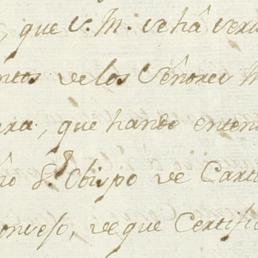 , que V. M. se hâ serv
ntos de los Señores M
ara, que hande enten
ño Sr. Obispo de Cart
onveso, de que Certifi